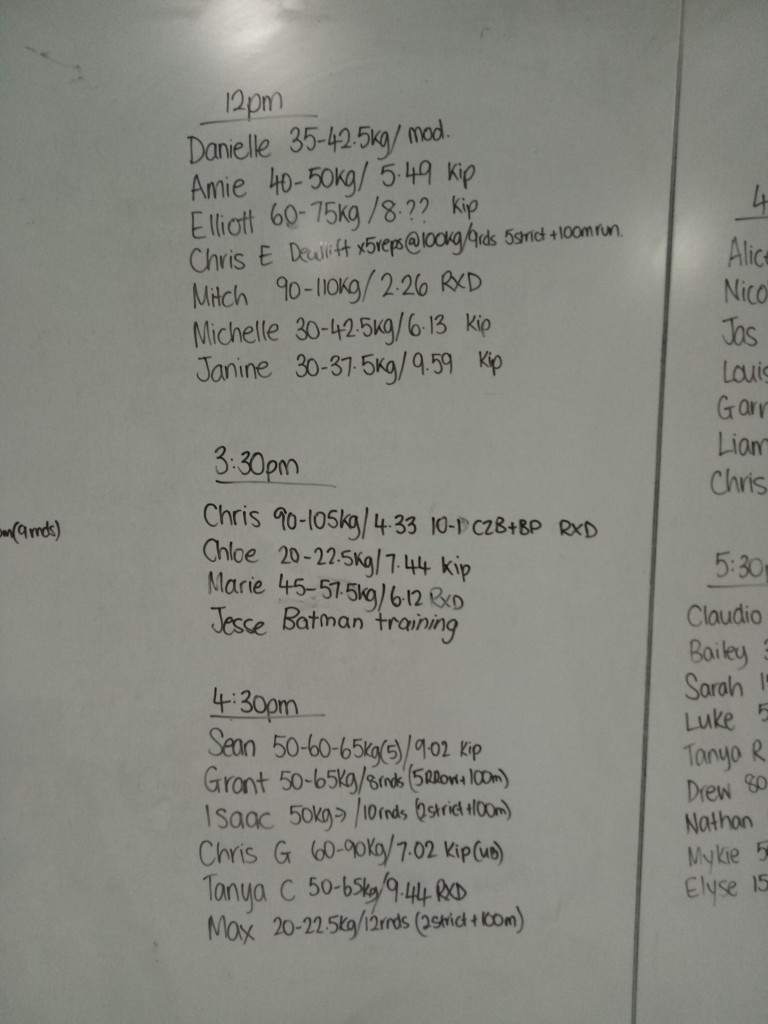 12pm
Danielle 35-42.5kg/ mod.
Amie 40-50kg/ 5.49 Kip
Elliott 60-75kg /8.?? Kip
Chris E Deadlift x5reps@100kg/9rds 5strict+100mrun.
Mitch 90-110kg/2.26 RXD
Michelle 30-42.5kg/6.13 Kip
Janine 30-37.5kg/9.59 Kip
3:30pm
Chris 90-105kg/4.33 10-1 C2B+BP RXD
Chloe 20-22.5kg/7.44 kip
Marie 45-57.5kg/6.12 RXD
Jesse Batman training
4:30pm
Sean 50-60-65kg(5)/9.02 Kip
Grant 50-65kg/8rnds (5RRow+100m)
Isaac 50kg→ /10rnds (2strict+100m)
Chris G 60-90kg/7.02 Kip(UB)
Tanya C 50-65kg/9.44 RXD
Max 20-22.5kg/12rnds (2strict+100m)
m(9rnds)
4
Alic
Nico
Jas
Louis
Garr
Liam
Chris
5:30p
Claudio
Bailey 3
Sarah 1
Luke 5
Tanya R
Drew 80
Nathan
Mykie 5
Elyse 15